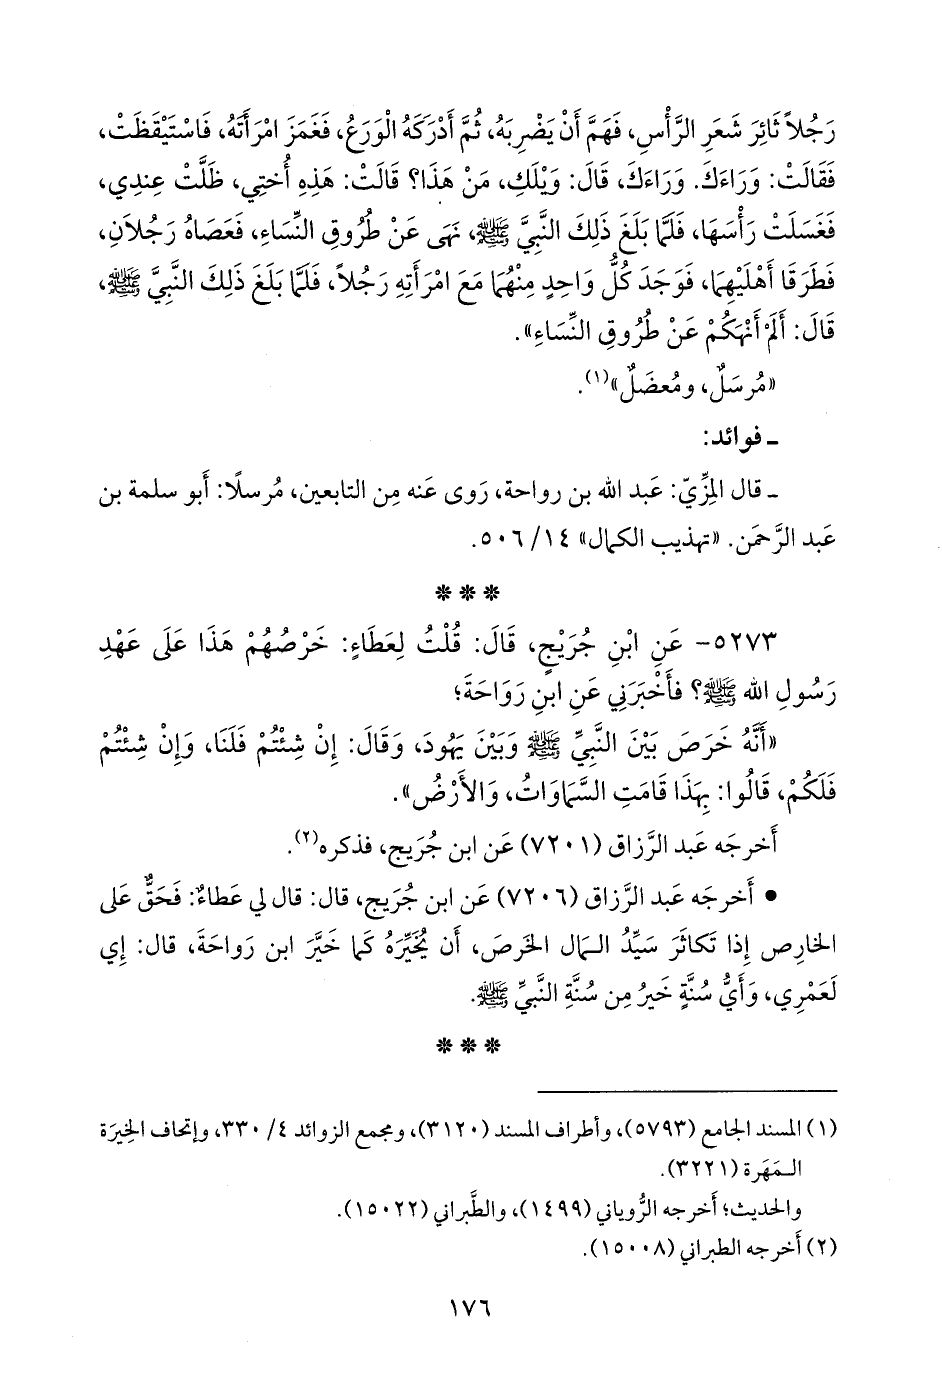 رَجُلاً ثَائِرَ شَعَرِ الرَّأْسِ، فَهَمَّ أَنْ يَضْرِبَهُ، ثُمَّ أَدْرَكَهُ الْوَرَعُ، فَغَمَزَ امْرَأَتَهُ، فَاسْتَيْقَظَتْ،
فَقَالَتْ: وَرَاءَكَ. وَرَاءَكَ، قَالَ: وَيْلَكِ، مَنْ هَذَا؟ قَالَتْ: هَذِهِ أُخْتِي، ظَلَّتْ عِنْدِي،
فَغَسَلَتْ رَأْسَهَا، فَلَمَّا بَلَغَ ذَلِكَ النَّبِيَّ ﷺ، نَهَى عَنْ طُرُوقِ النِّسَاءِ، فَعَصَاهُ رَجُلاَنِ،
فَطَرَقَا أَهْلَيْهِمَا، فَوَجَدَ كُلُّ وَاحِدٍ مِنْهُمَا مَعَ امْرَأَتِهِ رَجُلاً، فَلَمَّا بَلَغَ ذَلِكَ النَّبِيَّ ﷺ،
قَالَ: أَلَمْ أَنْهَكُمْ عَنْ طُرُوقِ النِّسَاءِ».
«مُرسَلٌ، ومُعضَلٌ»(١).
ـ فوائد:
ـ قال المِزِّيّ: عَبد الله بن رواحة، رَوى عَنه مِن التابعين، مُرسلًا: أَبو سلمة بن
عَبد الرَّحمَن. «تهذيب الكمال» ١٤/ ٥٠٦.
* * *
٥٢٧٣- عَنِ ابْنِ جُرَيْجٍ، قَالَ: قُلْتُ لِعَطَاءٍ: خَرْصُهُمْ هَذَا عَلَى عَهْدِ
رَسُولِ الله ﷺ؟ فأَخْبَرَنِي عَنِ ابنِ رَوَاحَةَ؛
«أَنَّهُ خَرَصَ بَيْنَ النَّبِيِّ ﷺ وَبَيْنَ يَهُودَ، وَقَالَ: إِنْ شِئْتُمْ فَلَنَا، وَإِنْ شِئْتُمْ
فَلَكُمْ، قَالُوا: بِهَذَا قَامَتِ السَّمَاوَاتُ، وَالأَرْضُ».
أَخرجَه عَبد الرَّزاق (٧٢٠١) عَن ابن جُرَيج، فذكره(٢).
• أَخرجَه عَبد الرَّزاق (٧٢٠٦) عَن ابن جُرَيج، قال: قال لي عَطاءٌ: فَحَقٌّ عَلى
الخارِص إِذا تَكاثَرَ سَيِّدُ الـمَال الخَرصَ، أَن يُخَيِّرَهُ كَما خَيَّرَ ابن رَواحَةَ، قال: إِي
لَعَمْرِي، وَأَيُّ سُنَّةٍ خَيرٌ مِن سُنَّةِ النَّبيِّ ﷺ.
* * *
(١) المسند الجامع (٥٧٩٣)، وأطراف المسند (٣١٢٠)، ومجمع الزوائد ٤/ ٣٣٠، وإتحاف الخِيرَة
الـمَهَرة (٣٢٢١).
والحديث؛ أَخرجه الرُّوياني (١٤٩٩)، والطَّبراني (١٥٠٢٢).
(٢) أَخرجه الطبراني (١٥٠٠٨).
١٧٦